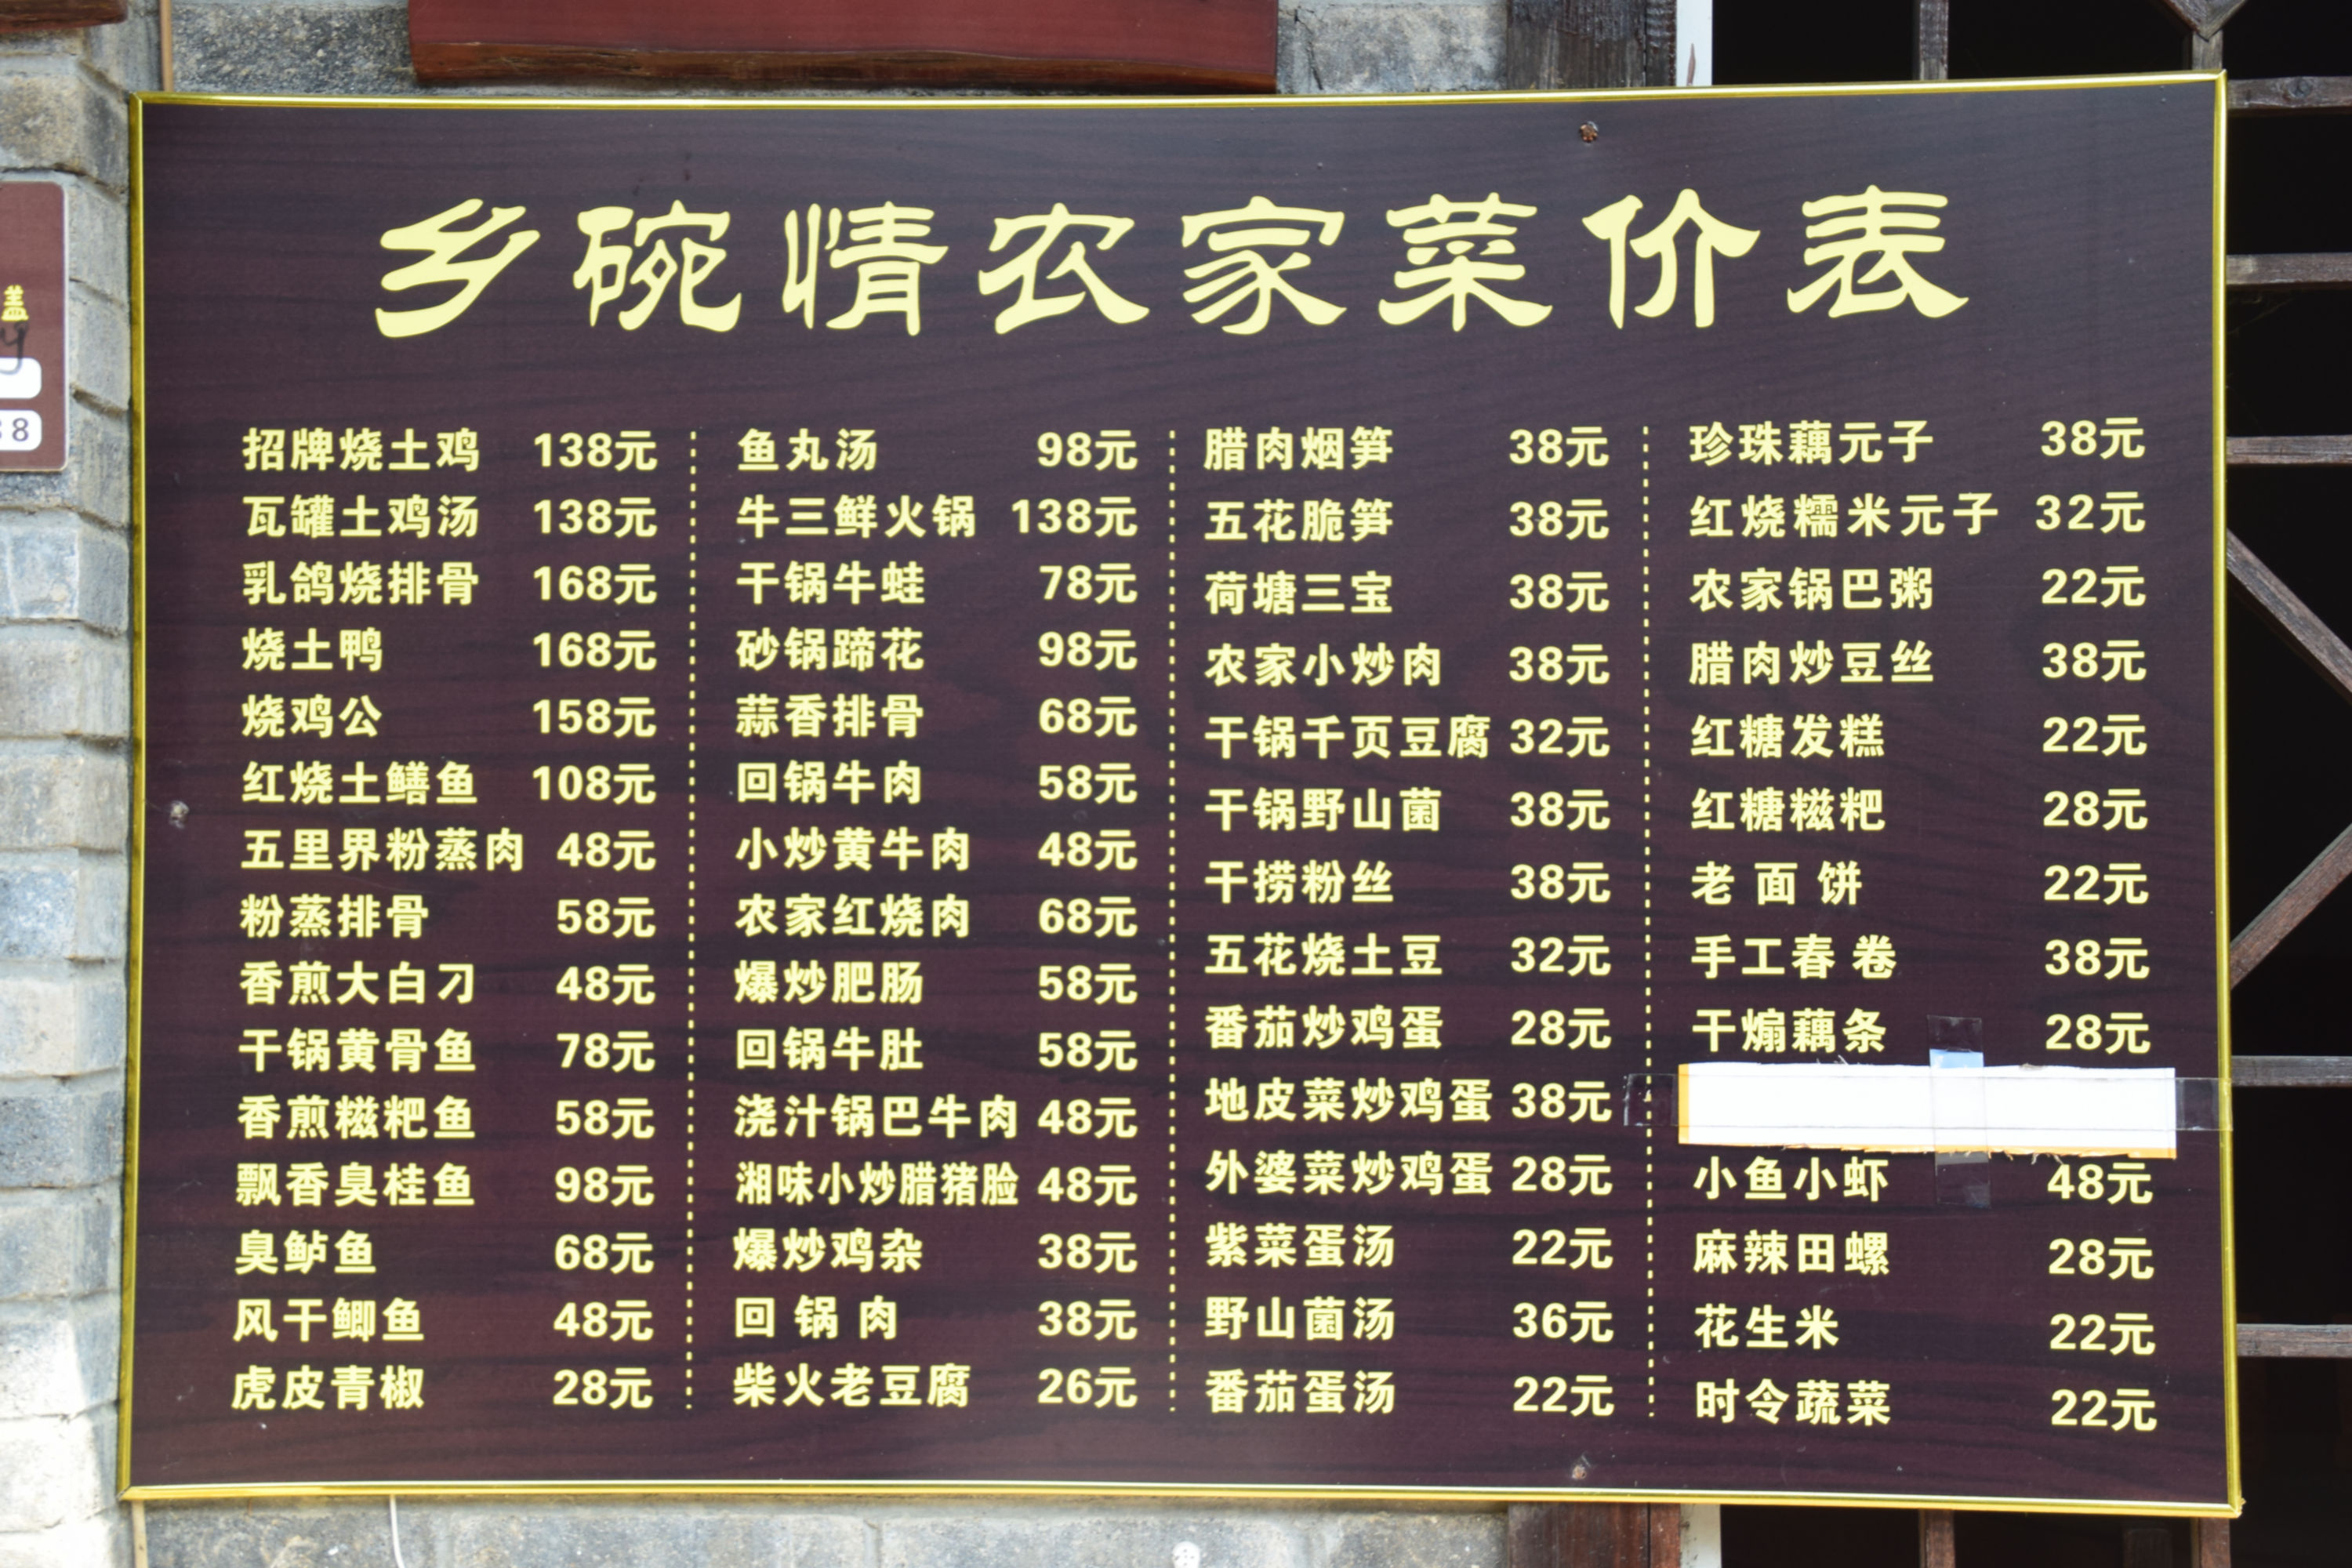 乡碗情农家菜价表
招牌烧土鸡 138元
瓦罐土鸡汤 138元
乳鸽烧排骨 168元
烧土鸭 168元
烧鸡公 158元
红烧土鳝鱼 108元
五里界粉蒸肉 48元
粉蒸排骨 58元
香煎大白刁 48元
干锅黄骨鱼 78元
香煎糍粑鱼 58元
飘香臭桂鱼 98元
臭鲈鱼 68元
风干鲫鱼 48元
虎皮青椒 28元
鱼丸汤 98元
牛三鲜火锅 138元
干锅牛蛙 78元
砂锅蹄花 98元
蒜香排骨 68元
回锅牛肉 58元
小炒黄牛肉 48元
农家红烧肉 68元
爆炒肥肠 58元
回锅牛肚 58元
浇汁锅巴牛肉 48元
湘味小炒腊猪脸 48元
爆炒鸡杂 38元
回锅肉 38元
柴火老豆腐 26元
腊肉烟笋 38元
五花脆笋 38元
荷塘三宝 38元
农家小炒肉 38元
干锅千页豆腐 32元
干锅野山菌 38元
干捞粉丝 38元
五花烧土豆 32元
番茄炒鸡蛋 28元
地皮菜炒鸡蛋 38元
外婆菜炒鸡蛋 28元
紫菜蛋汤 22元
野山菌汤 36元
番茄蛋汤 22元
珍珠藕元子 38元
红烧糯米元子 32元
农家锅巴粥 22元
腊肉炒豆丝 38元
红糖发糕 22元
红糖糍粑 28元
老面饼 22元
手工春卷 38元
干煸藕条 28元
小鱼小虾 48元
麻辣田螺 28元
花生米 22元
时令蔬菜 22元
盖
8